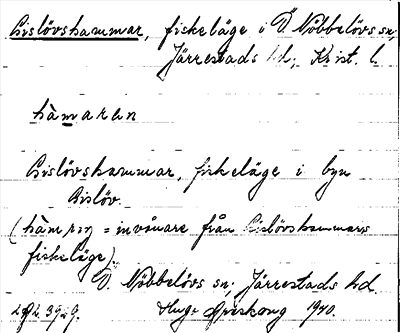 Gislövshammar, fiskeläge i Ö Nöbbelövs sn;
Järrestads hd; Krist. l.
hàmaren
Gislövshammar, fiskeläge i byn
Gislöv.
(hàmriŋ = invånare från Gislövshammars
fiskeläge).
Ö. Nöbbelövs sn; Järrestads hd.
Hugo Areskoug 1940.